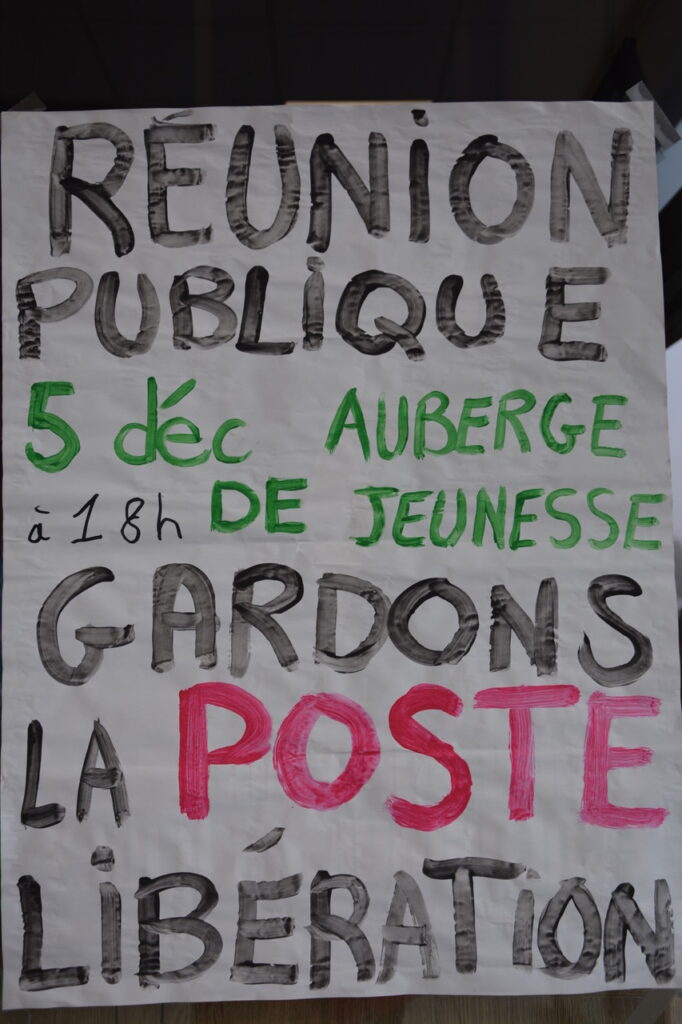 RÉUNiON
PUBLiQUE
5 déc AUBERGE
à 18h DE JEUNESSE
GARDONS
LA POSTE
LiBÉRATiON